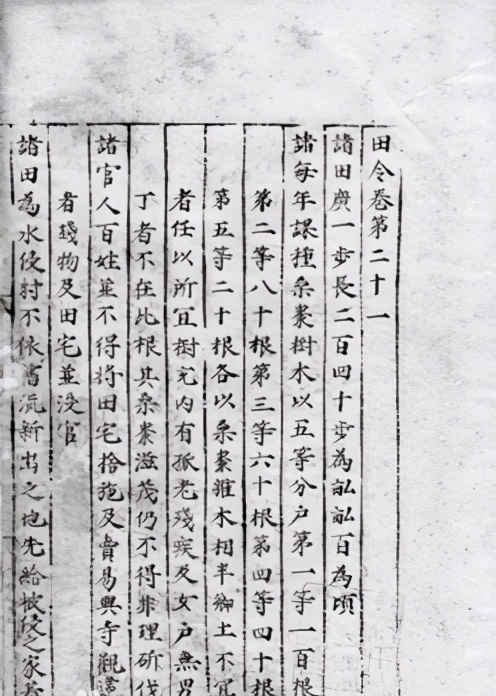 田令卷第二十一
諸田廣一步長二百四十步為畝畝百為頃
諸每年課種桑棗樹木以五等分户第一等一百根
第二等八十根第三等六十根第四等四十根
第五等二十根各以桑棗雜木相半鄉土不宜
者任以所宜樹充内有孤老殘疾及女户無男
丁者不在此根其桑棗滋茂仍不得非理斫伐
諸官人百姓並不得將田宅捨施及賣易與寺觀違
者錢物及田宅並没官
諸田為水侵射不依舊流新出之地先給被侵之家若